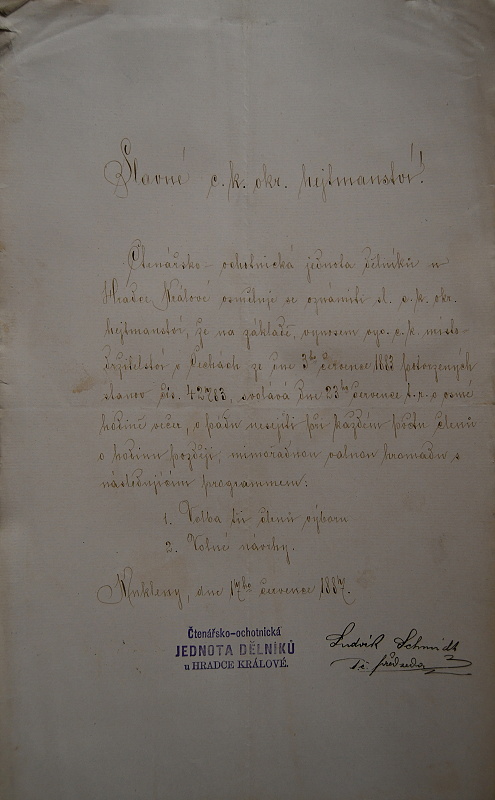 Slavné c. k. okr. hejtmanství!
Čtenářsko-ochotnická jednota dělníků u
Hradce Králové osměluje se oznámiti sl. c. k. okr.
hejtmanství, že na základě, vynosem vys. c. k. místo-
držitelství v Čechách ze dne 3ho července 1873 potvrzených
stanov čís. 42783, svolává dne 23ho července t. r. o osmé
hodině večer, v pádu nesejití při každém počtu členů
o hodinu později, mimořádnou valnou hromadu s
následujícím programmem:
1. Volba tří členů výboru
2. Volné návrhy.
Kukleny, dne 17ho července 1887.
Čtenářsko-ochotnická
JEDNOTA DĚLNÍKŮ
u HRADCE KRÁLOVÉ.
Ludvík Schmidt
předseda